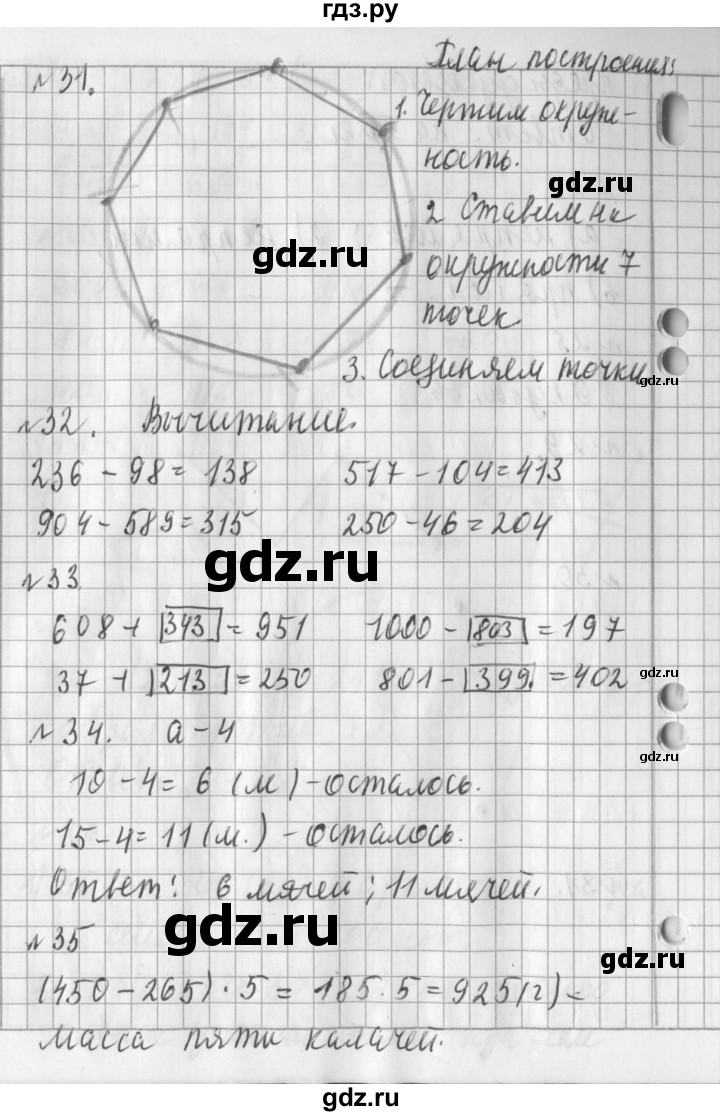 гдз.ру
№31.
План построения:
1. Чертим окруж-
ность.
gdz.ru
2 Ставим на
gdz.ru
окружности 7
точек
3. Соединяем точки
gdz.ru
№32. Вычитание.
236 - 98 = 138 517 - 104 = 413
904 - 589 = 315 250 - 46 = 204
gdz.ru
№33
608 + 343 = 951 1000 - 803 = 197
37 + 213 = 250 801 - 399. = 402
gdz.ru
№34. а - 4
gdz.ru
10 - 4 = 6 (м) - осталось.
15 - 4 = 11 (м.) - осталось.
Ответ: 6 мячей; 11 мячей.
gdz.ru
№35
gdz.ru
(450 - 265) · 5 = 185 · 5 = 925 (г) -
масса пяти калачей.
gdz.ru